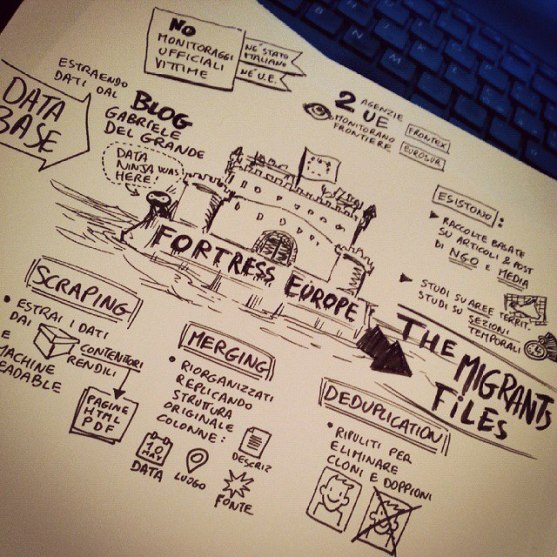 NO
MONITORAGGI
UFFICIALI
VITTIME
NE' STATO
ITALIANO
NE' U.E.
2 AGENZIE
UE
MONITORANO
FRONTIERE
FRONTEX
EUROSUR
DATA
BASE
ESTRAENDO
DATI DAL
BLOG
GABRIELE
DEL GRANDE
DATA
NINJA WAS
HERE!
FORTRESS EUROPE
ESISTONO:
RACCOLTE BASATE
SU ARTICOLI & POST
DI NGO E MEDIA
STUDI SU AREE TERRIT.
STUDI SU SEZIONI
TEMPORALI
THE
MIGRANTS
FILES
SCRAPING
• ESTRAI I DATI
DAI CONTENITORI
E RENDILI
MACHINE
READABLE
PAGINE
HTML
PDF
MERGING
• RIORGANIZZATI
REPLICANDO
STRUTTURA
ORIGINALE
COLONNE:
10
MAY
DATA
LUOGO
DESCRIZ
FONTE
DEDUPLICATION
• RIPULITI PER
ELIMINARE
CLONI E DOPPIONI